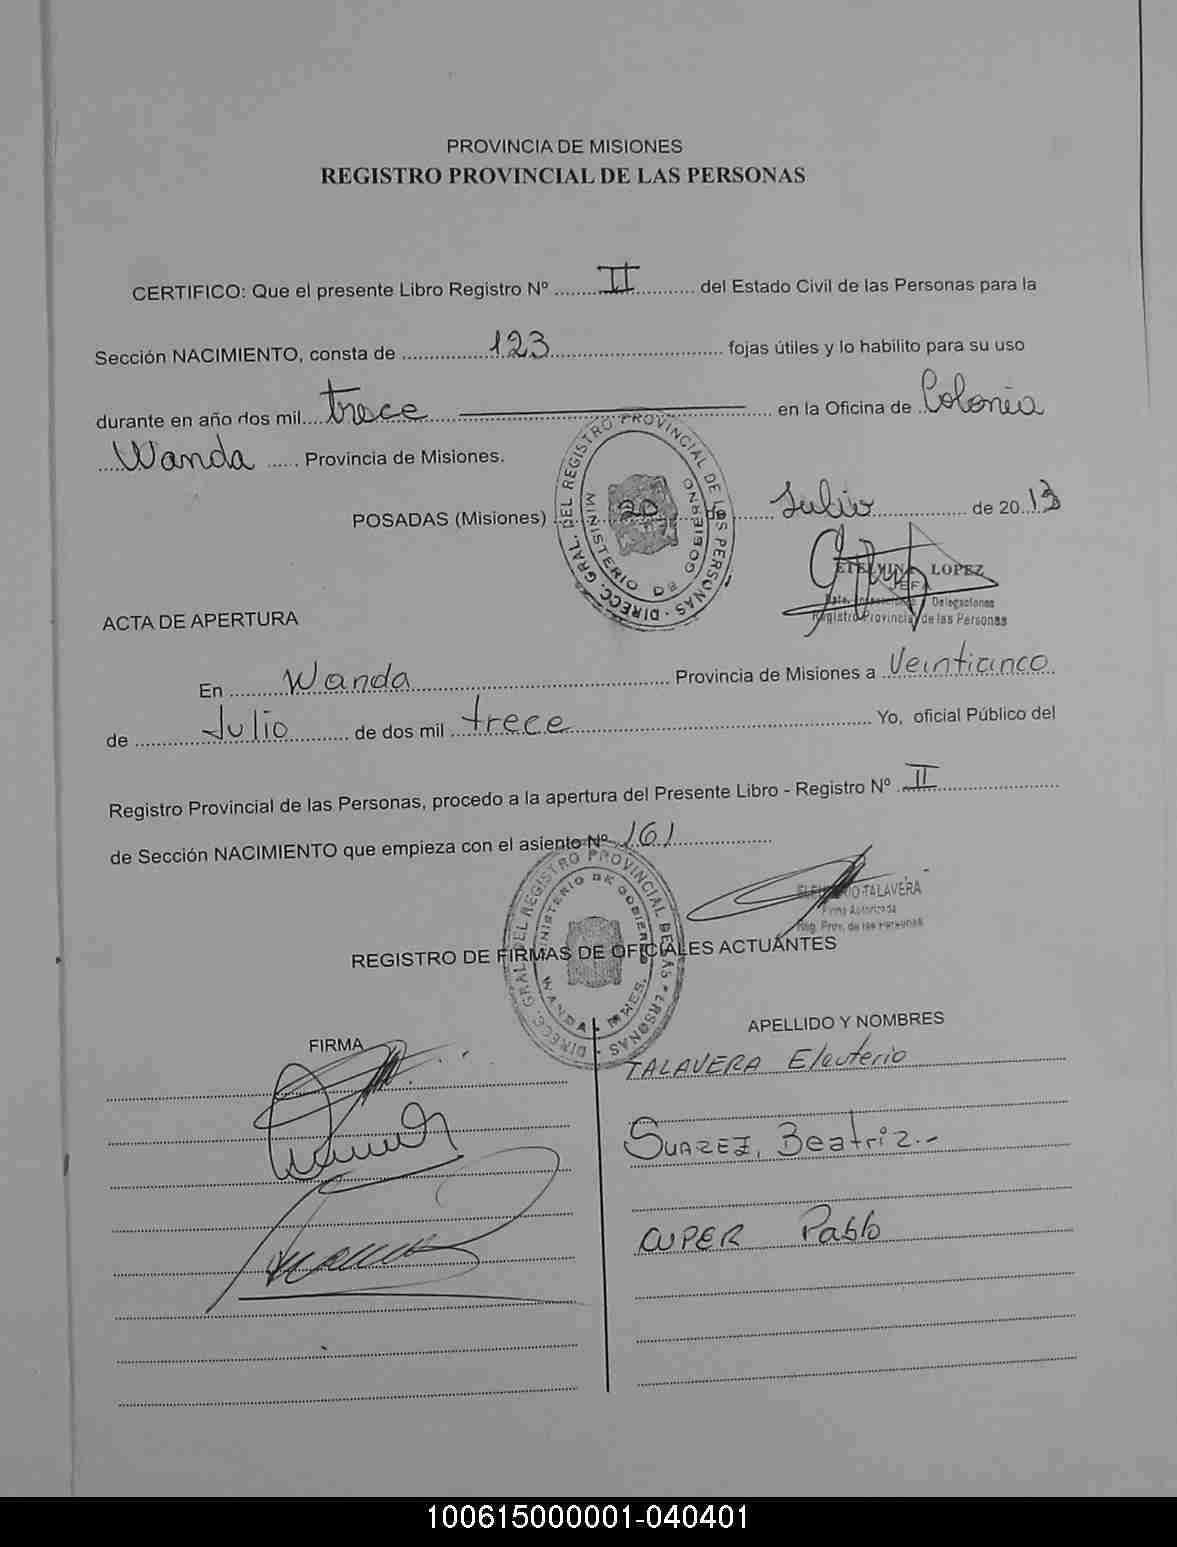 PROVINCIA DE MISIONES
REGISTRO PROVINCIAL DE LAS PERSONAS
CERTIFICO: Que el presente Libro Registro Nº II del Estado Civil de las Personas para la
Sección NACIMIENTO, consta de 123 fojas útiles y lo habilito para su uso
durante en año dos mil trece en la Oficina de Colonia
Wanda Provincia de Misiones.
POSADAS (Misiones) 20 de Julio de 2013
DIRECC. GRAL. DEL REGISTRO PROVINCIAL DE LAS PERSONAS
MINISTERIO DE GOBIERNO
LOPEZ
JEFA
Delegaciones
Registro Provincial de las Personas
ACTA DE APERTURA
En Wanda Provincia de Misiones a Veinticinco
de Julio de dos mil trece Yo, oficial Público del
Registro Provincial de las Personas, procedo a la apertura del Presente Libro - Registro Nº II
de Sección NACIMIENTO que empieza con el asiento Nº 161
DIRECC. GRAL. DEL REGISTRO PROVINCIAL DE LAS PERSONAS
MINISTERIO DE GOBIERNO
WANDA - MNES.
TALAVERA
Firma Autorizada
Reg. Prov. de las Personas
REGISTRO DE FIRMAS DE OFICIALES ACTUANTES
FIRMA
APELLIDO Y NOMBRES
TALAVERA Eleuterio
SUAREZ, Beatriz.-
CUPER Pablo
100615000001-040401